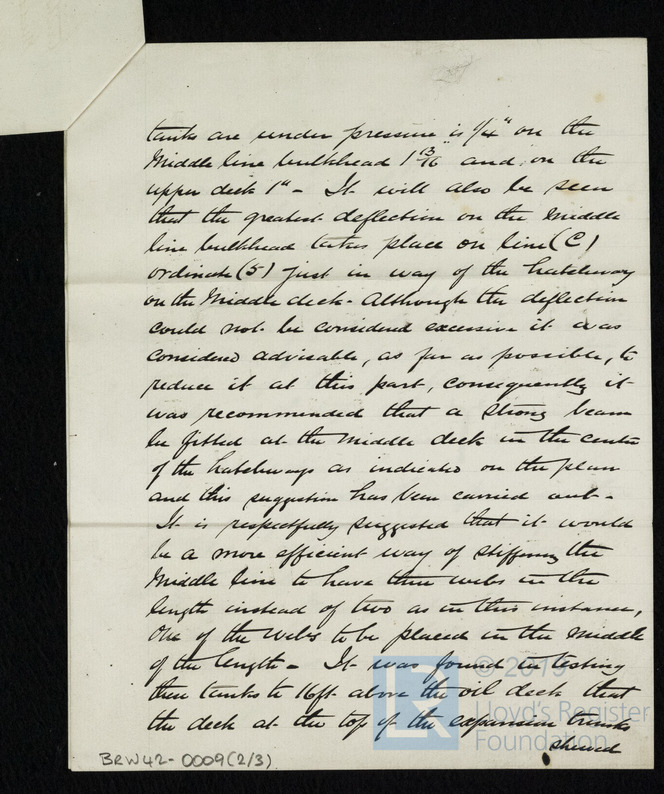 tanks are under pressure is 1/4" on the
Middle line bulkhead 1 13/16" and on the
upper deck 1" - It will also be seen
that the greatest deflection on the Middle
line bulkhead takes place on line (C)
ordinate (5) just in way of the hatchway
on the Middle deck - Although the deflection
could not be considered excessive it was
considered advisable, as far as possible, to
reduce it at this part, consequently it
was recommended that a strong beam
be fitted at the Middle deck in the centre
of the hatchways as indicated on the plan
and this suggestion has been carried out -
It is respectfully suggested that it would
be a more efficient way of stiffening the
Middle line to have three webs in the
length instead of two as in this instance,
One of the Webs to be placed in the Middle
of the length - It was found in testing
these tanks to 16ft above the oil deck that
the deck at the top of the expansion trunks
shewed
BRW42-0009(2/3)
© 2019
Lloyd's Register
Foundation